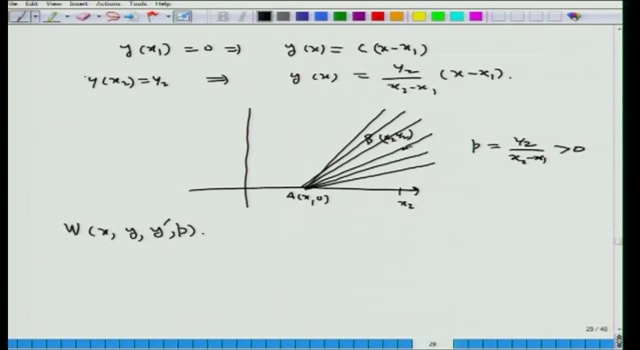 File Edit View Insert Actions Tools Help
y(x₁) = 0 ⇒ y(x) = C(x-x₁)
y(x₂) = y₂ ⇒ y(x) = y₂/(x₂-x₁) (x-x₁).
B(x₂,y₂)
p = y₂/(x₂-x₁) > 0
A(x₁,0) x₂
W(x, y, y′, p).
29 / 40
29